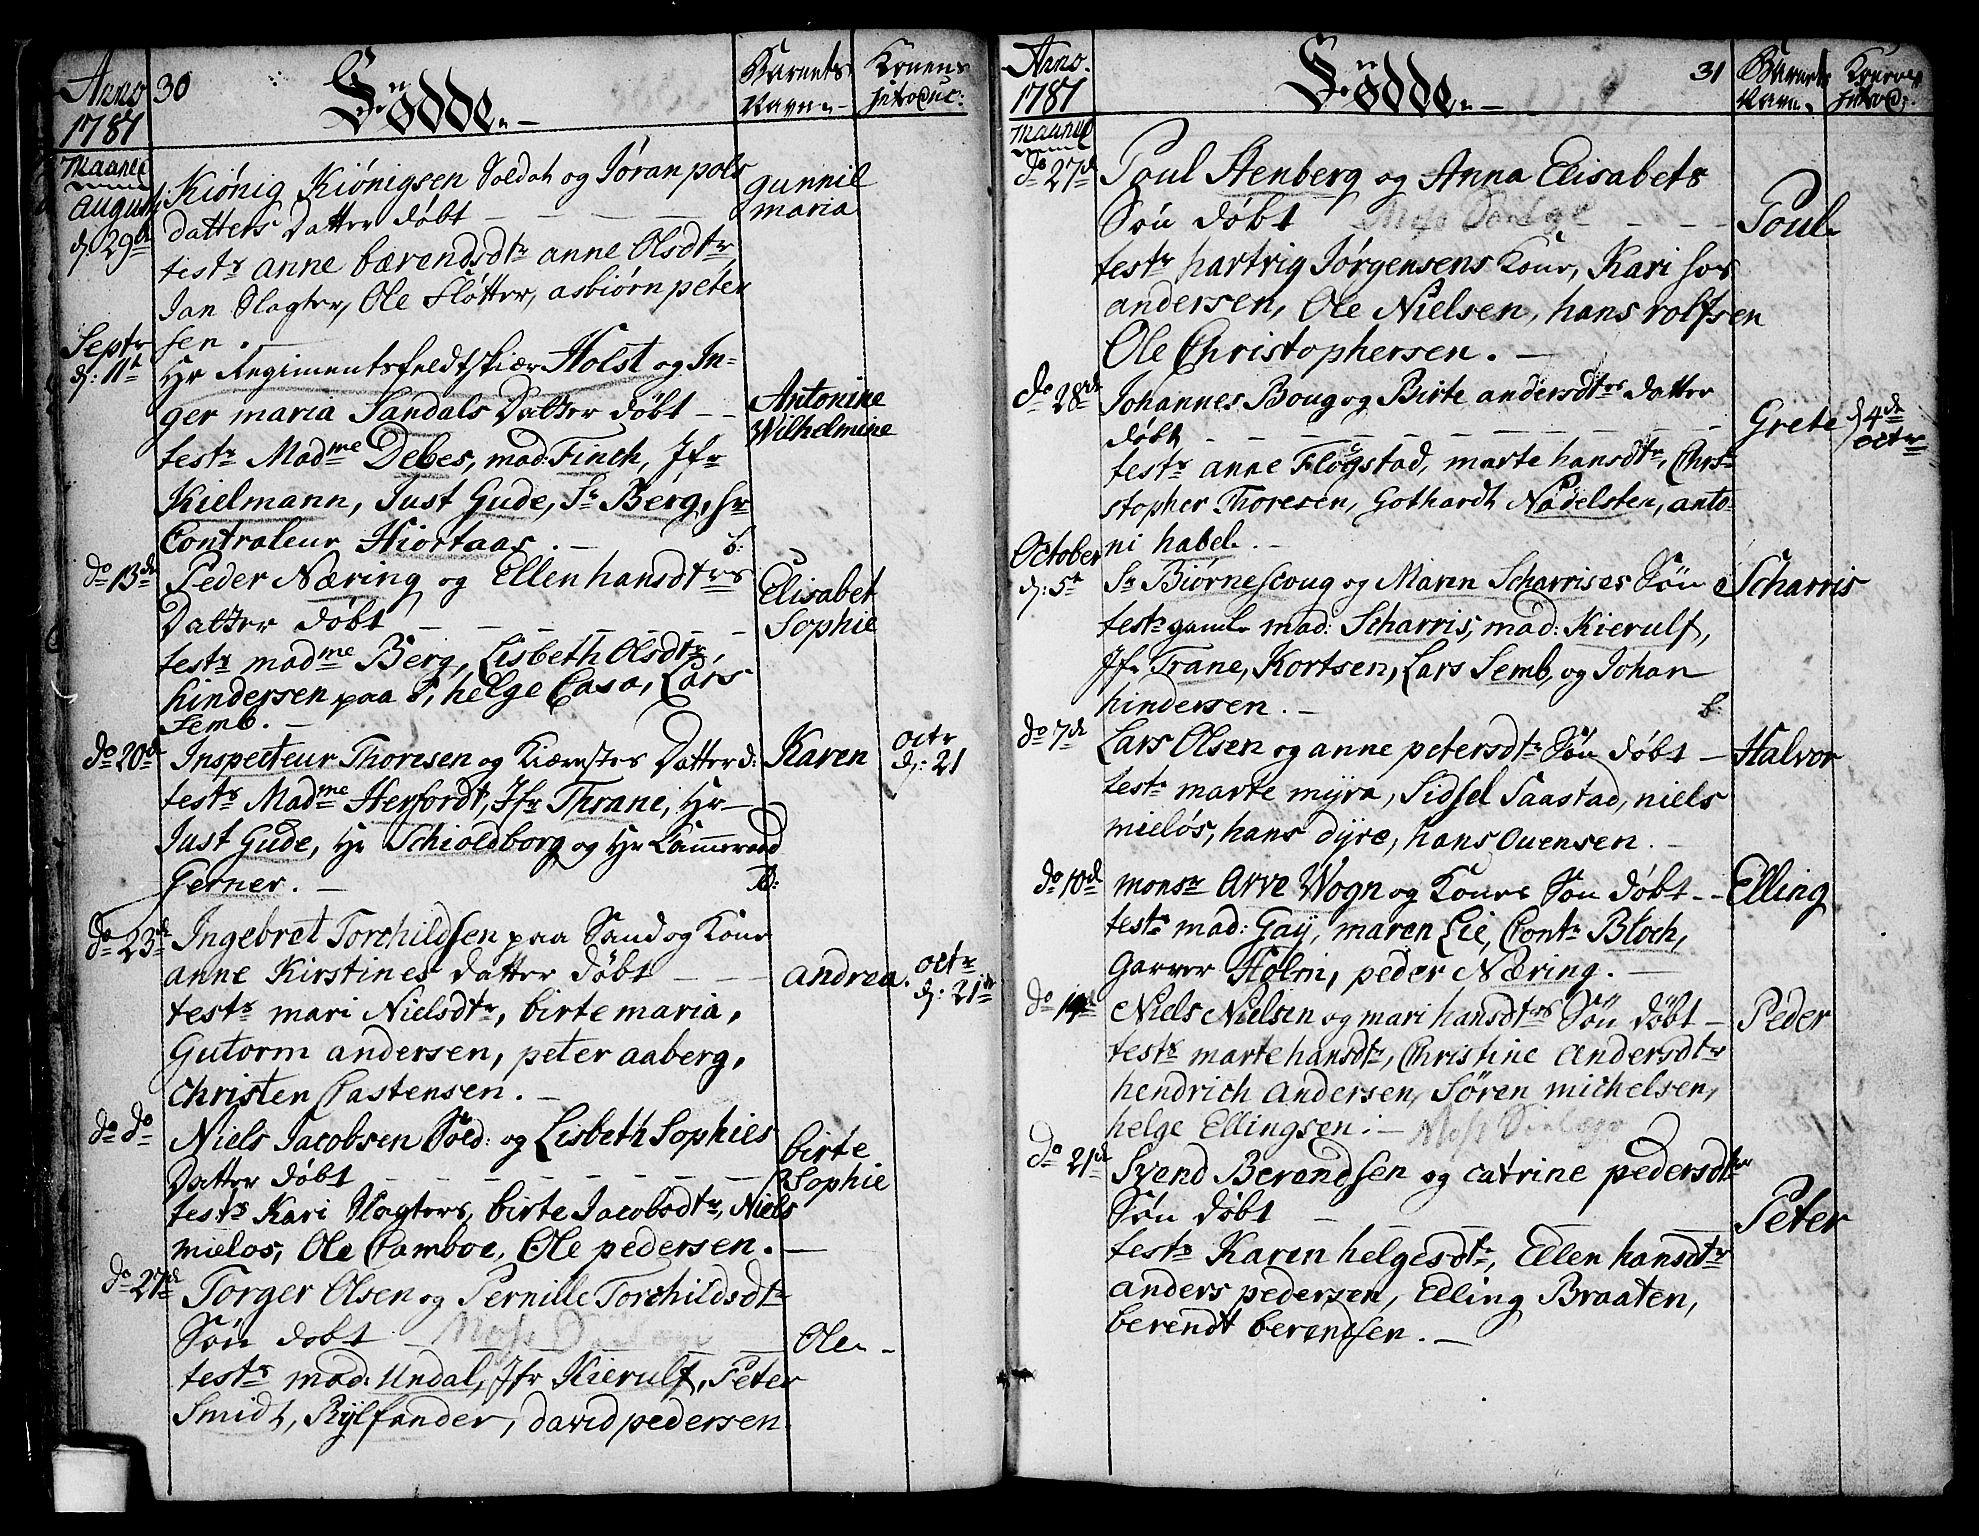 Anno 30 Födde.
1781
Barnets Navn
Konens introduc:
Maaned
August
d: 29de
Kiönig Kiönigsen Soldat og Jöran pols
datters Datter döbt
gunnil
maria
testr anne bærendsdtr anne Olsdtr,
Jan Slagter, Ole Slötter, asbiörn peter
sen.
Septr
d: 11t
Hr Regimentsfeldtskiær Holst og In-
ger maria Sandals Datter döbt
Antonine
Wilhelmine
testr Madme Debes, mad: Finch, Jfr
Kielmann, Just Gude, Sr Berg, hr
Contraleur Hiortaas.
do 13de
Peder Næring og Ellen hansdtrs
Datter döbt
Elisabet
Sophie
testr madme Berg, Lisbeth Olsdtr,
hindersen paa S, helge Casa, Lars
Semb.
do 20de
Inspecteur Thoresen og Kiærestes Datter d:
Karen
octr
d: 21
testr Madme Herfordt, Jfr Thrane, Hr
Just Gude, Hr Schioldborg og Hr Cammeraad
Gerner.
do 23de
Ingebret Torchildsen paa Sand og Kone
anne Kirstines datter döbt
andrea.
octr
d: 21de
testr mari Nielsdtr, birte maria,
Gutorm andersen, peter aaberg,
Christen Castensen.
do do
Niels Jacobsen Sold: og Lisbeth Sophies
Datter döbt
birte
Sophie
testr Kari Slagters, birte Jacobsdtr, Niels
mielos, Ole Camboe, Ole pedersen.
do 27de
Torger Olsen og Pernille Torchildsdtr
Sön döbt
Ole
testr mad: Undal, Jfr Kierulf, Peter
Smidt, Rylfander, david pedersen
Anno Födde. 31
1781
Barnets Navn
Konens introd:
Maaned
do 27de
Poul Stenberg og Anna Elisabets
Sön döbt
Poul
testr hartvig Jörgensens Kone, Kari hos
andersen, Ole Nielsen, hans rolfsen
Ole Christophersen.
do 28de
Johannes Boug og Birte andersdtrs datter
döbt
Grete
d 4de
octr
testr anne Flogstad, marte hansdtr, Chri-
stopher Thoresen, Gothardt Nadelsten, anto-
ni habel.
October
d: 5t
Sr Biörnescoug og Maren Scharrises Sön
Scharris
testr gamle mad: Scharris, mad: Kierulf,
Jfr Trane, Kortsen, Lars Semb, og Johan
hindersen.
do 7de
Lars Olsen og anne petersdtr Sön döbt
Halvor
testr marte myra, Sidsel Saastad, niels
mielös, hans dyre, hans Ouensen.
do 10de
monsr Arve Wogn og Kones Sön döbt
Elling
testr mad: Gay, maren Lie, Contr Bloch,
Garver Holm, peder Næring.
do 14de
Niels Nielsen og mari hansdtrs Sön döbt
Peder
testr marte hansdtr, Christine Andersdtr
hendrich Andersen, Sören michelsen,
helge Ellingsen.
do 21de
Svend Berendsen og catrine pedersdtr
Sön döbt
Peter
testr Karen helgesdtr, Ellen hansdtr
anders pedersen, Elling Braaten,
berendt berendsen.